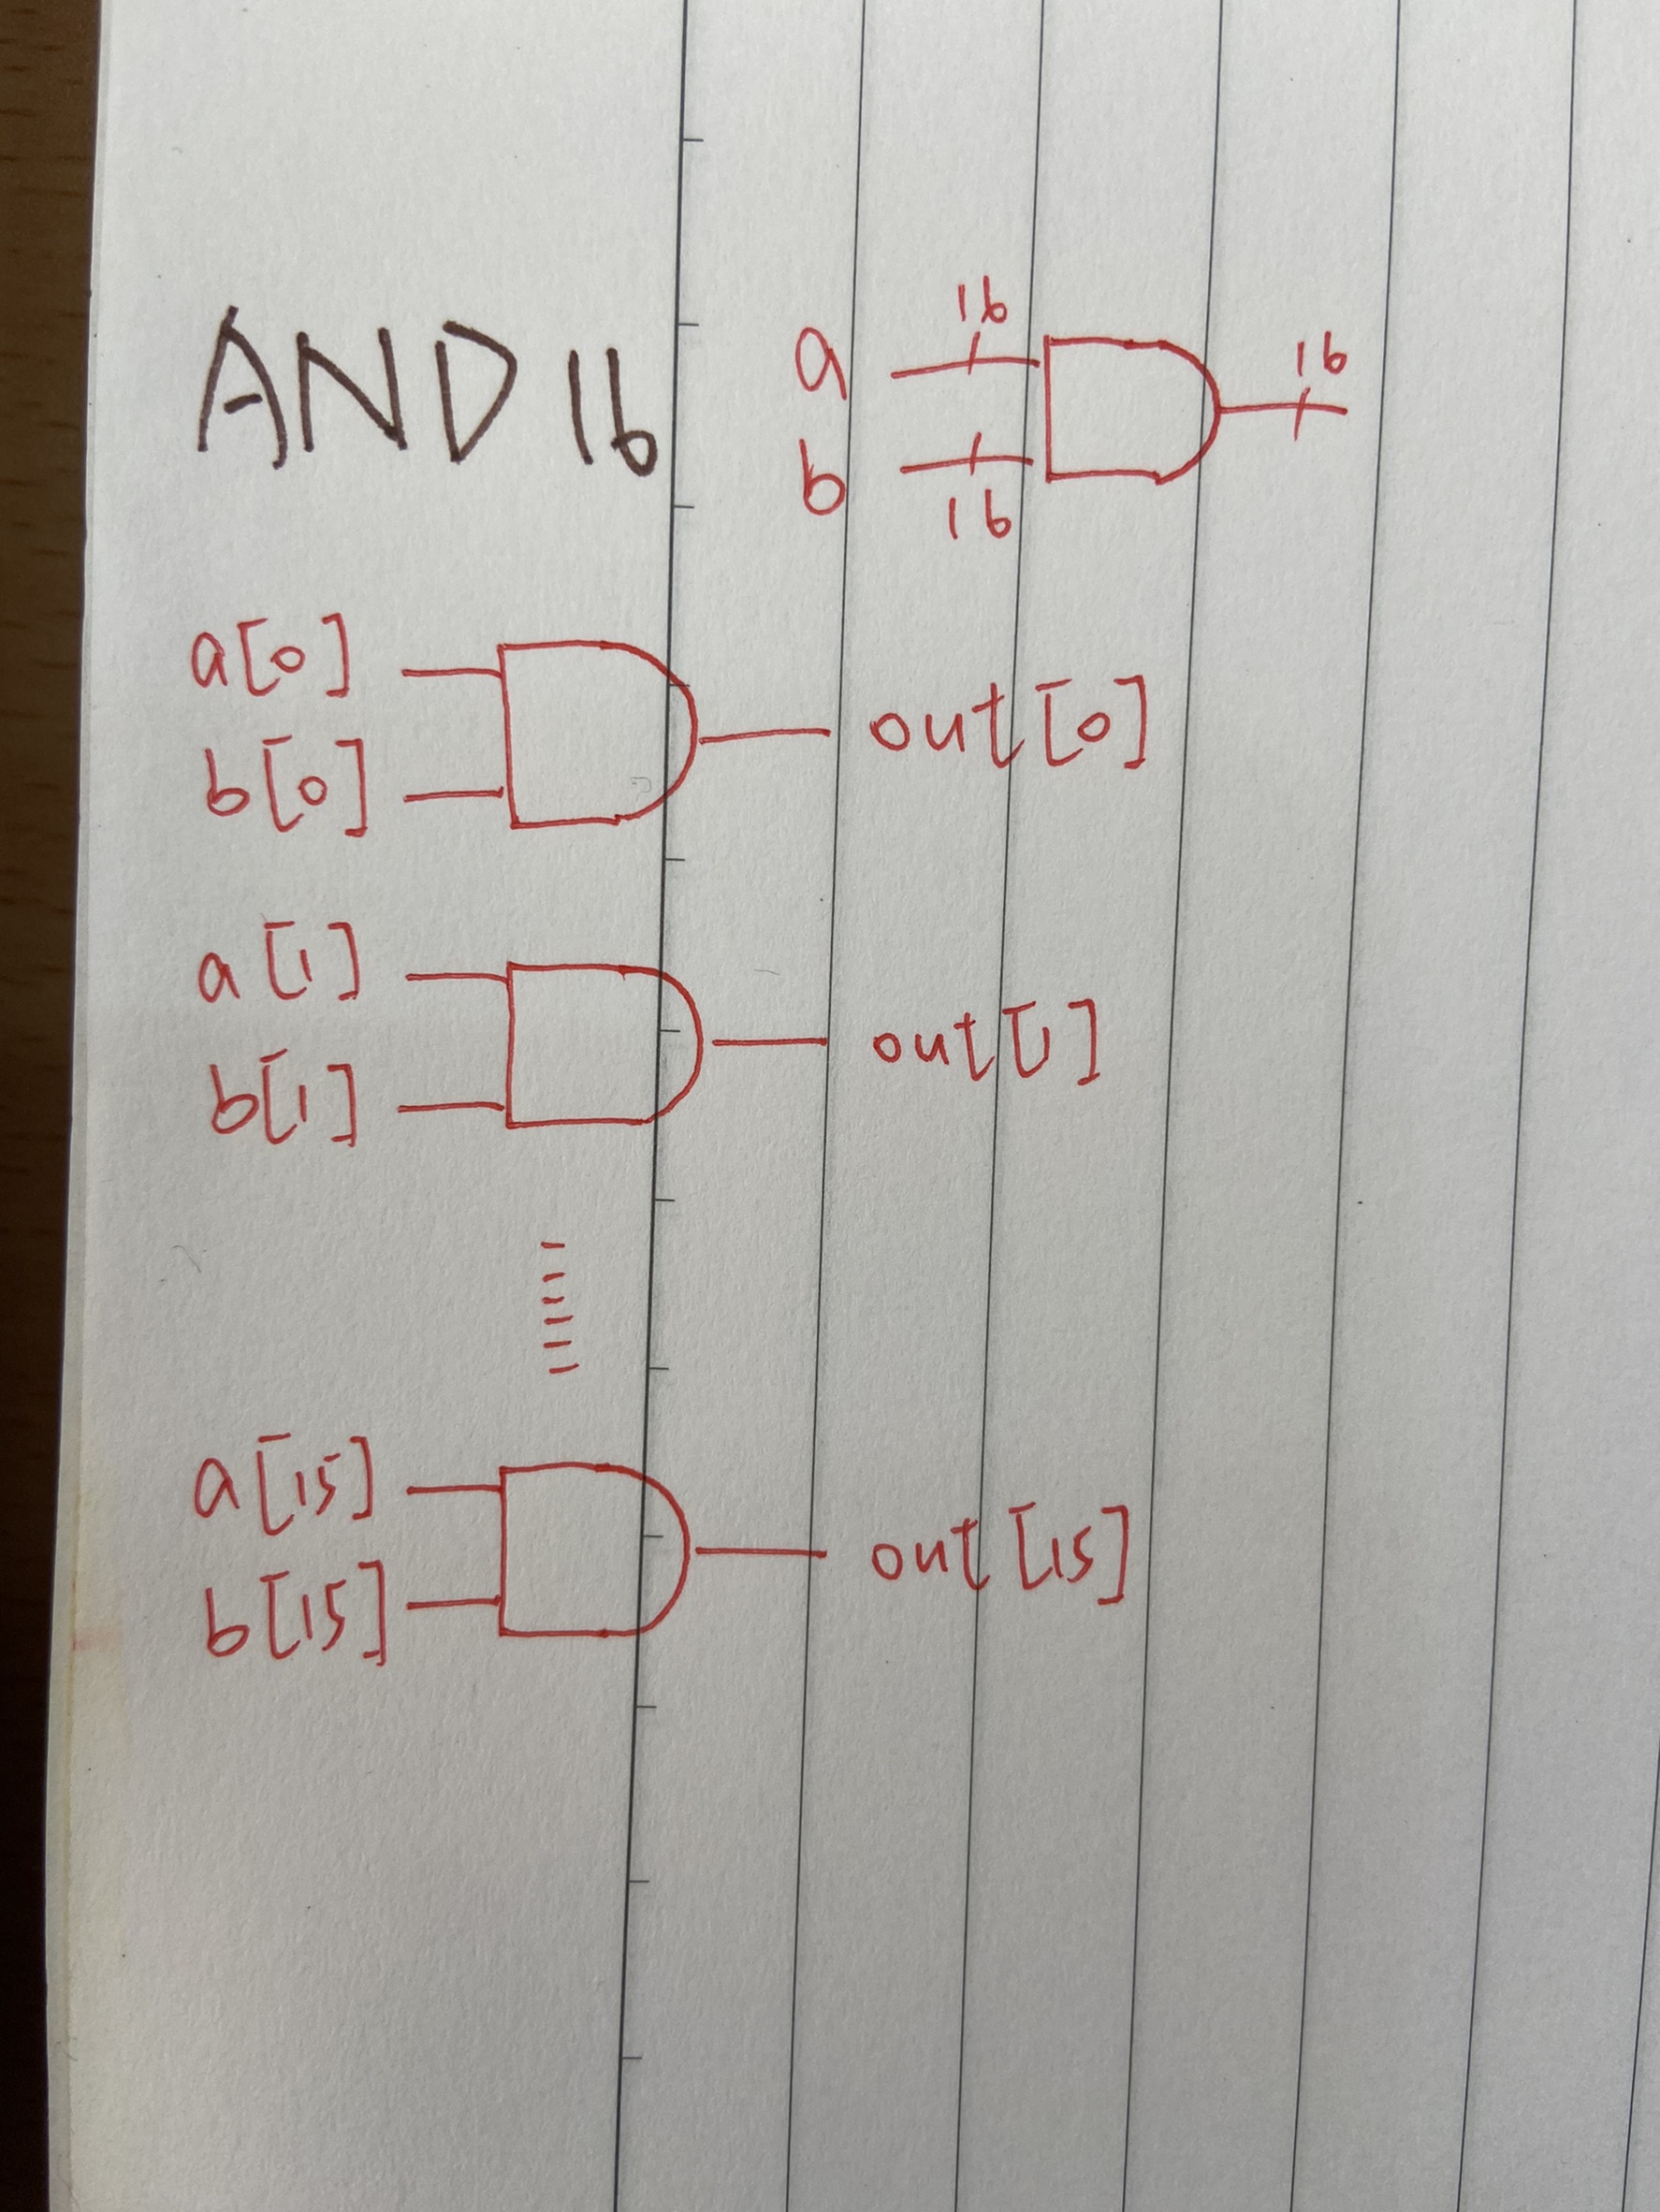 AND 16
16
a
16
b
16
a[0]
b[0]
out[0]
a[1]
b[1]
out[1]
a[15]
b[15]
out[15]